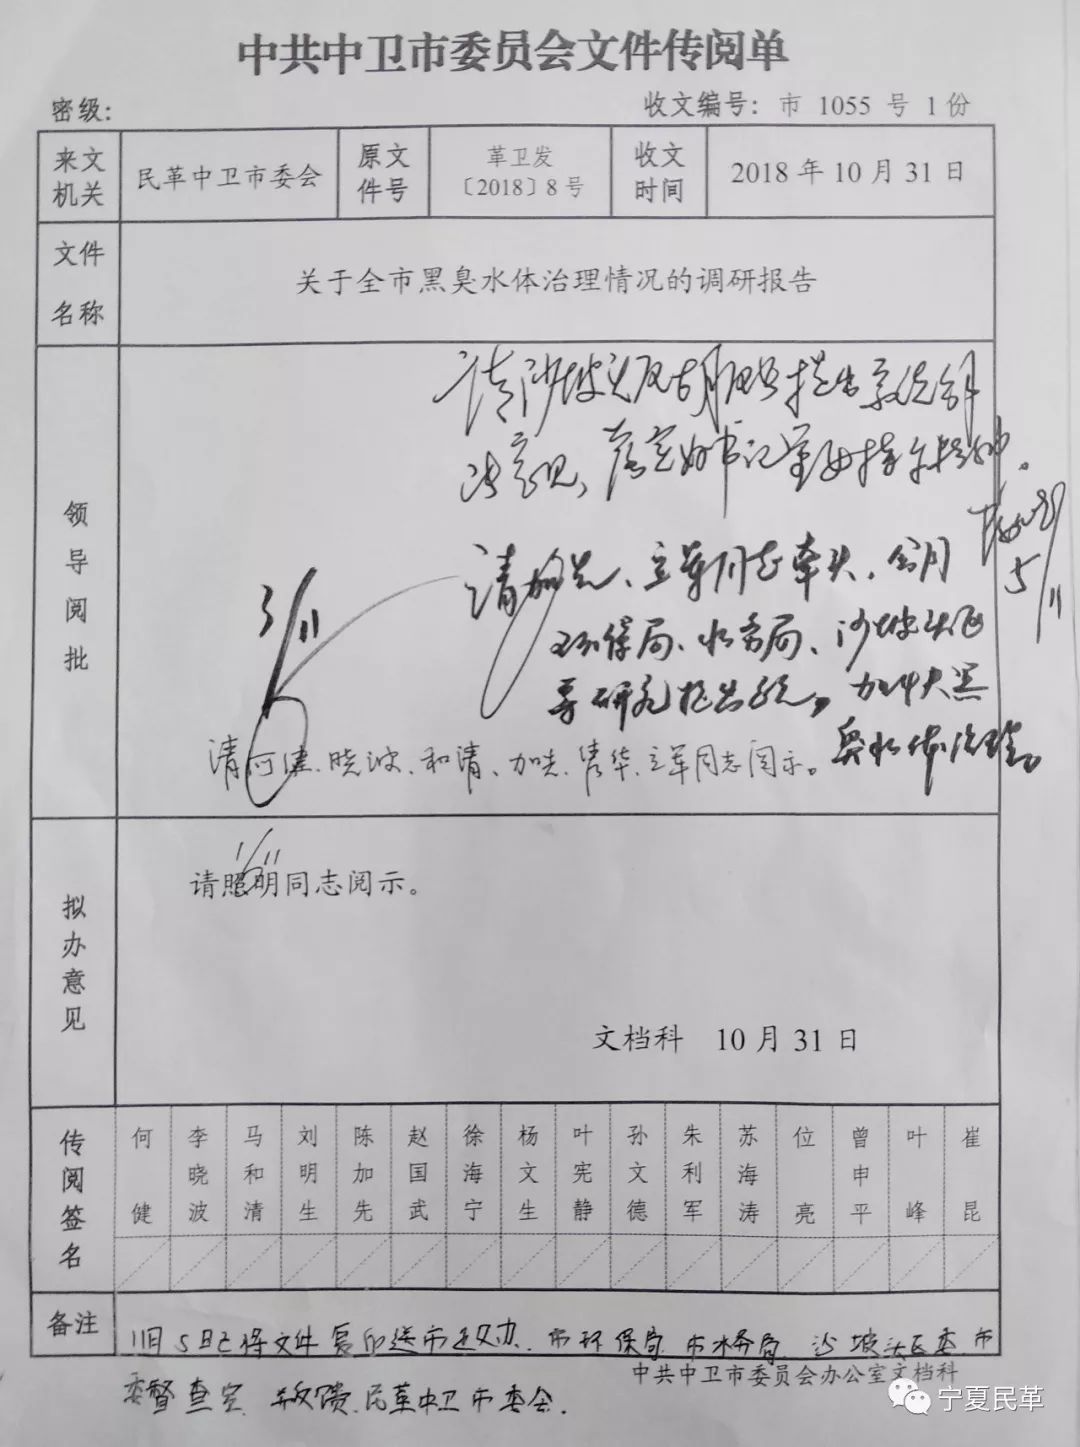 中共中卫市委员会文件传阅单
密级：
收文编号：市 1055 号 1份
来文机关
民革中卫市委会
原文件号
革卫发〔2018〕8号
收文时间
2018年10月31日
文件名称
关于全市黑臭水体治理情况的调研报告
领导阅批
请沙坡头区
5/11
请加先、立军同志牵头，会同
环保局、水务局、沙坡头区
等研究提出意见，加大黑
臭水体治理。
3/11
请何健、晓波、和清、加先、隽华、立军同志阅示。
1/11
拟办意见
请照明同志阅示。
文档科 10月31日
传阅签名
何健
李晓波
马和清
刘明生
陈加先
赵国武
徐海宁
杨文生
叶宪静
孙文德
朱利军
苏海涛
位亮
曾申平
叶峰
崔昆
备注
11月5日已将文件复印送市政府办、市环保局、市水务局、沙坡头区委、市
委督查室，并反馈民革中卫市委会。
中共中卫市委员会办公室文档科
宁夏民革